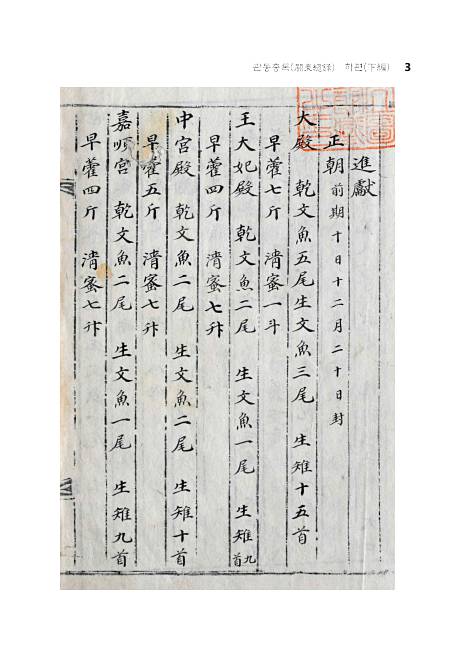 관동총록(關東總錄) 하편(下編) 3
進獻
正朝前期十日十二月二十日封
大殿 乾文魚五尾生文魚三尾 生雉十五首
早藿七斤 淸蜜一斗
王大妃殿 乾文魚二尾 生文魚一尾 生雉九首
早藿四斤 淸蜜七升
中宮殿 乾文魚二尾 生文魚二尾 生雉十首
早藿五斤 淸蜜七升
嘉順宮 乾文魚二尾 生文魚一尾 生雉九首
早藿四斤 淸蜜七升